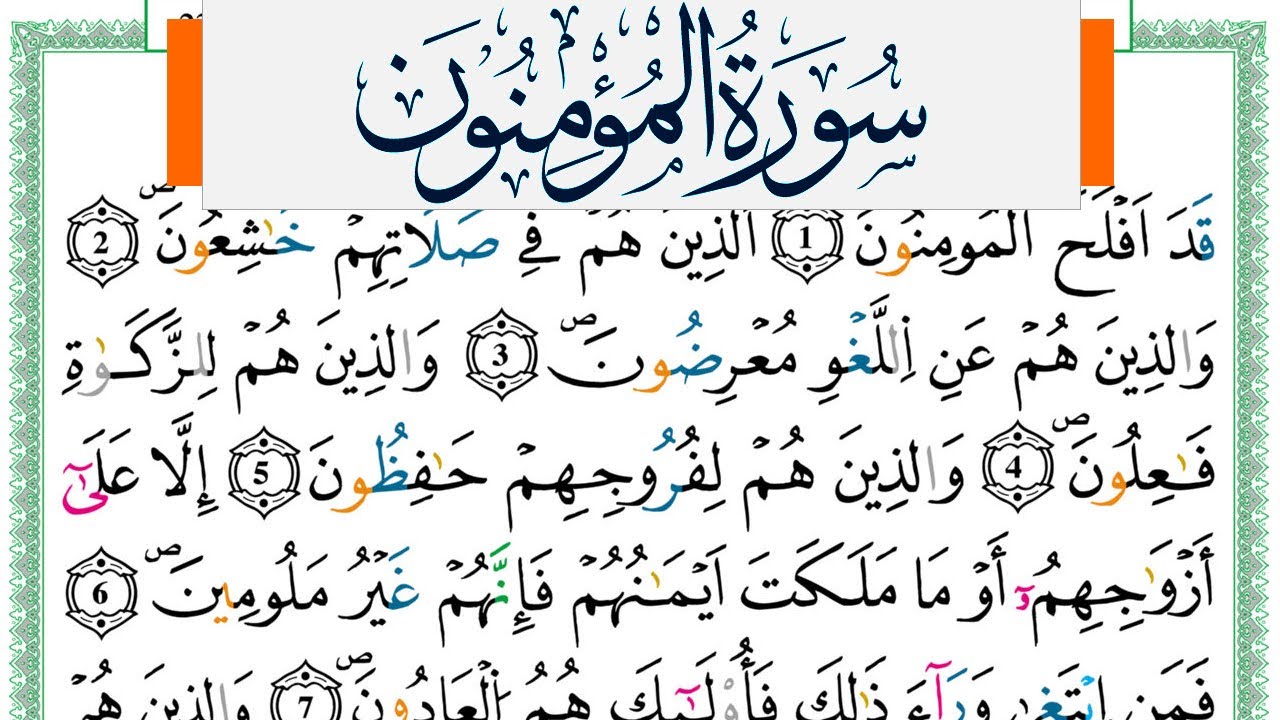 سُورَةُ الْمُؤْمِنُونَ
قَدَ اَفْلَحَ اَ۬لْمُومِنُونَ 1 اَ۬لذِينَ هُمْ فِے صَلَاتِهِمْ خَٰشِعُونَۖ 2
وَالذِينَ هُمْ عَنِ اِ۬للَّغْوِ مُعْرِضُونَۖ 3 وَالذِينَ هُمْ لِلزَّكَوٰةِ
فَٰعِلُونَۖ 4 وَالذِينَ هُمْ لِفُرُوجِهِمْ حَٰفِظُونَ 5 إِلَّا عَلَيٰٓ
أَزْوَٰجِهِمُۥٓ أَوْ مَا مَلَكَتَ اَيْمَٰنُهُمْ فَإِنَّهُمْ غَيْرُ مَلُومِينَۖ 6
فَمَنِ اِ۪بْتَغ۪يٰ وَرَآءَ ذَٰلِكَ فَأُوْلَٰٓئِكَ هُمُ اُ۬لْعَادُونَۖ 7 وَالذِينَ هُمْ